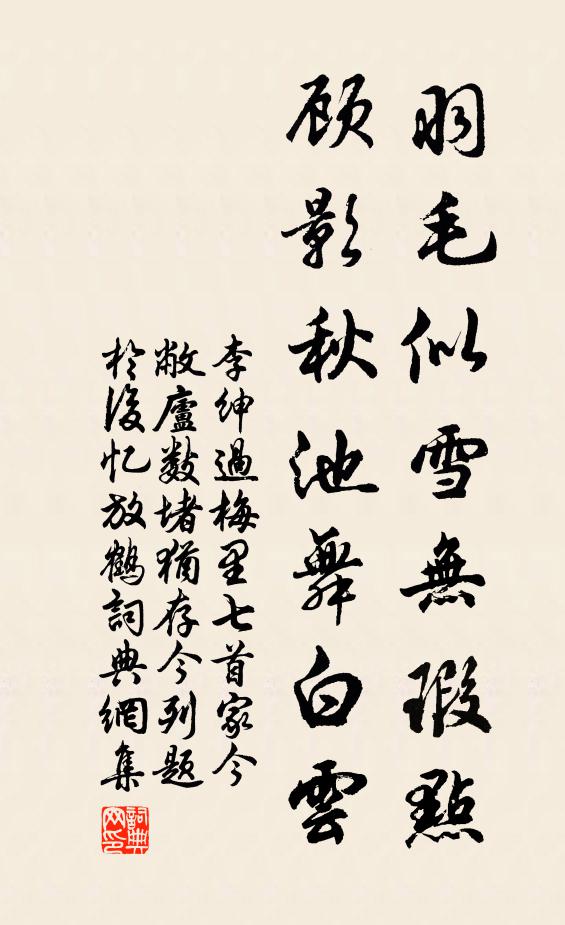 羽毛似雪無瑕點
顾影秋池舞白雲
李紳過梅里七首家今
敝廬數堵猶存今列題
於後忆放鶴詞典網集
詞典網印